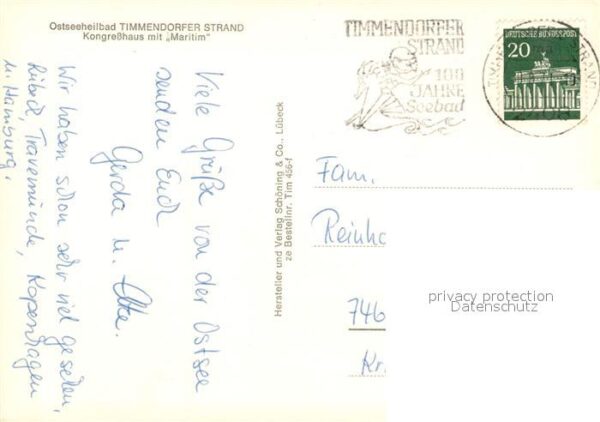 Ostseeheilbad TIMMENDORFER STRAND
Kongreßhaus mit „Maritim"
Viele Grüße von der Ostsee
senden Euch
Gerda u.
Wir haben schon sehr viel gesehen,
Lübeck, Travemünde, Kopenhagen
u. Hamburg.
Hersteller und Verlag Schöning & Co., Lübeck
ze Bestellnr. Tim 456-f
TIMMENDORFER
STRAND
100
JAHRE
Seebad
DEUTSCHE BUNDESPOST
20
Fam.
746
privacy protection
Datenschutz